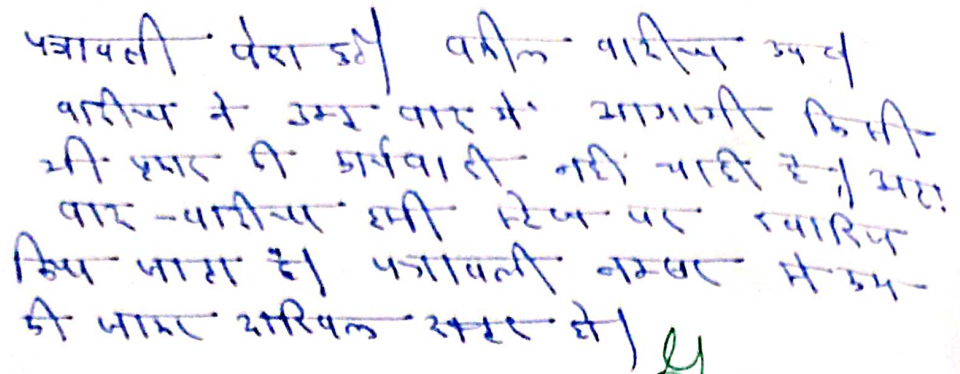 पत्रावली पेश हुई। वकील वादीया उप०।
वादीया ने उक्त वाद में आगामी किसी
भी प्रकार की कार्यवाही नहीं चाही है। अतः
वाद-वादीया इसी स्टेज पर खारिज
किया जाता है। पत्रावली नम्बर से कम
की जाकर दाखिल दफ्तर हो।